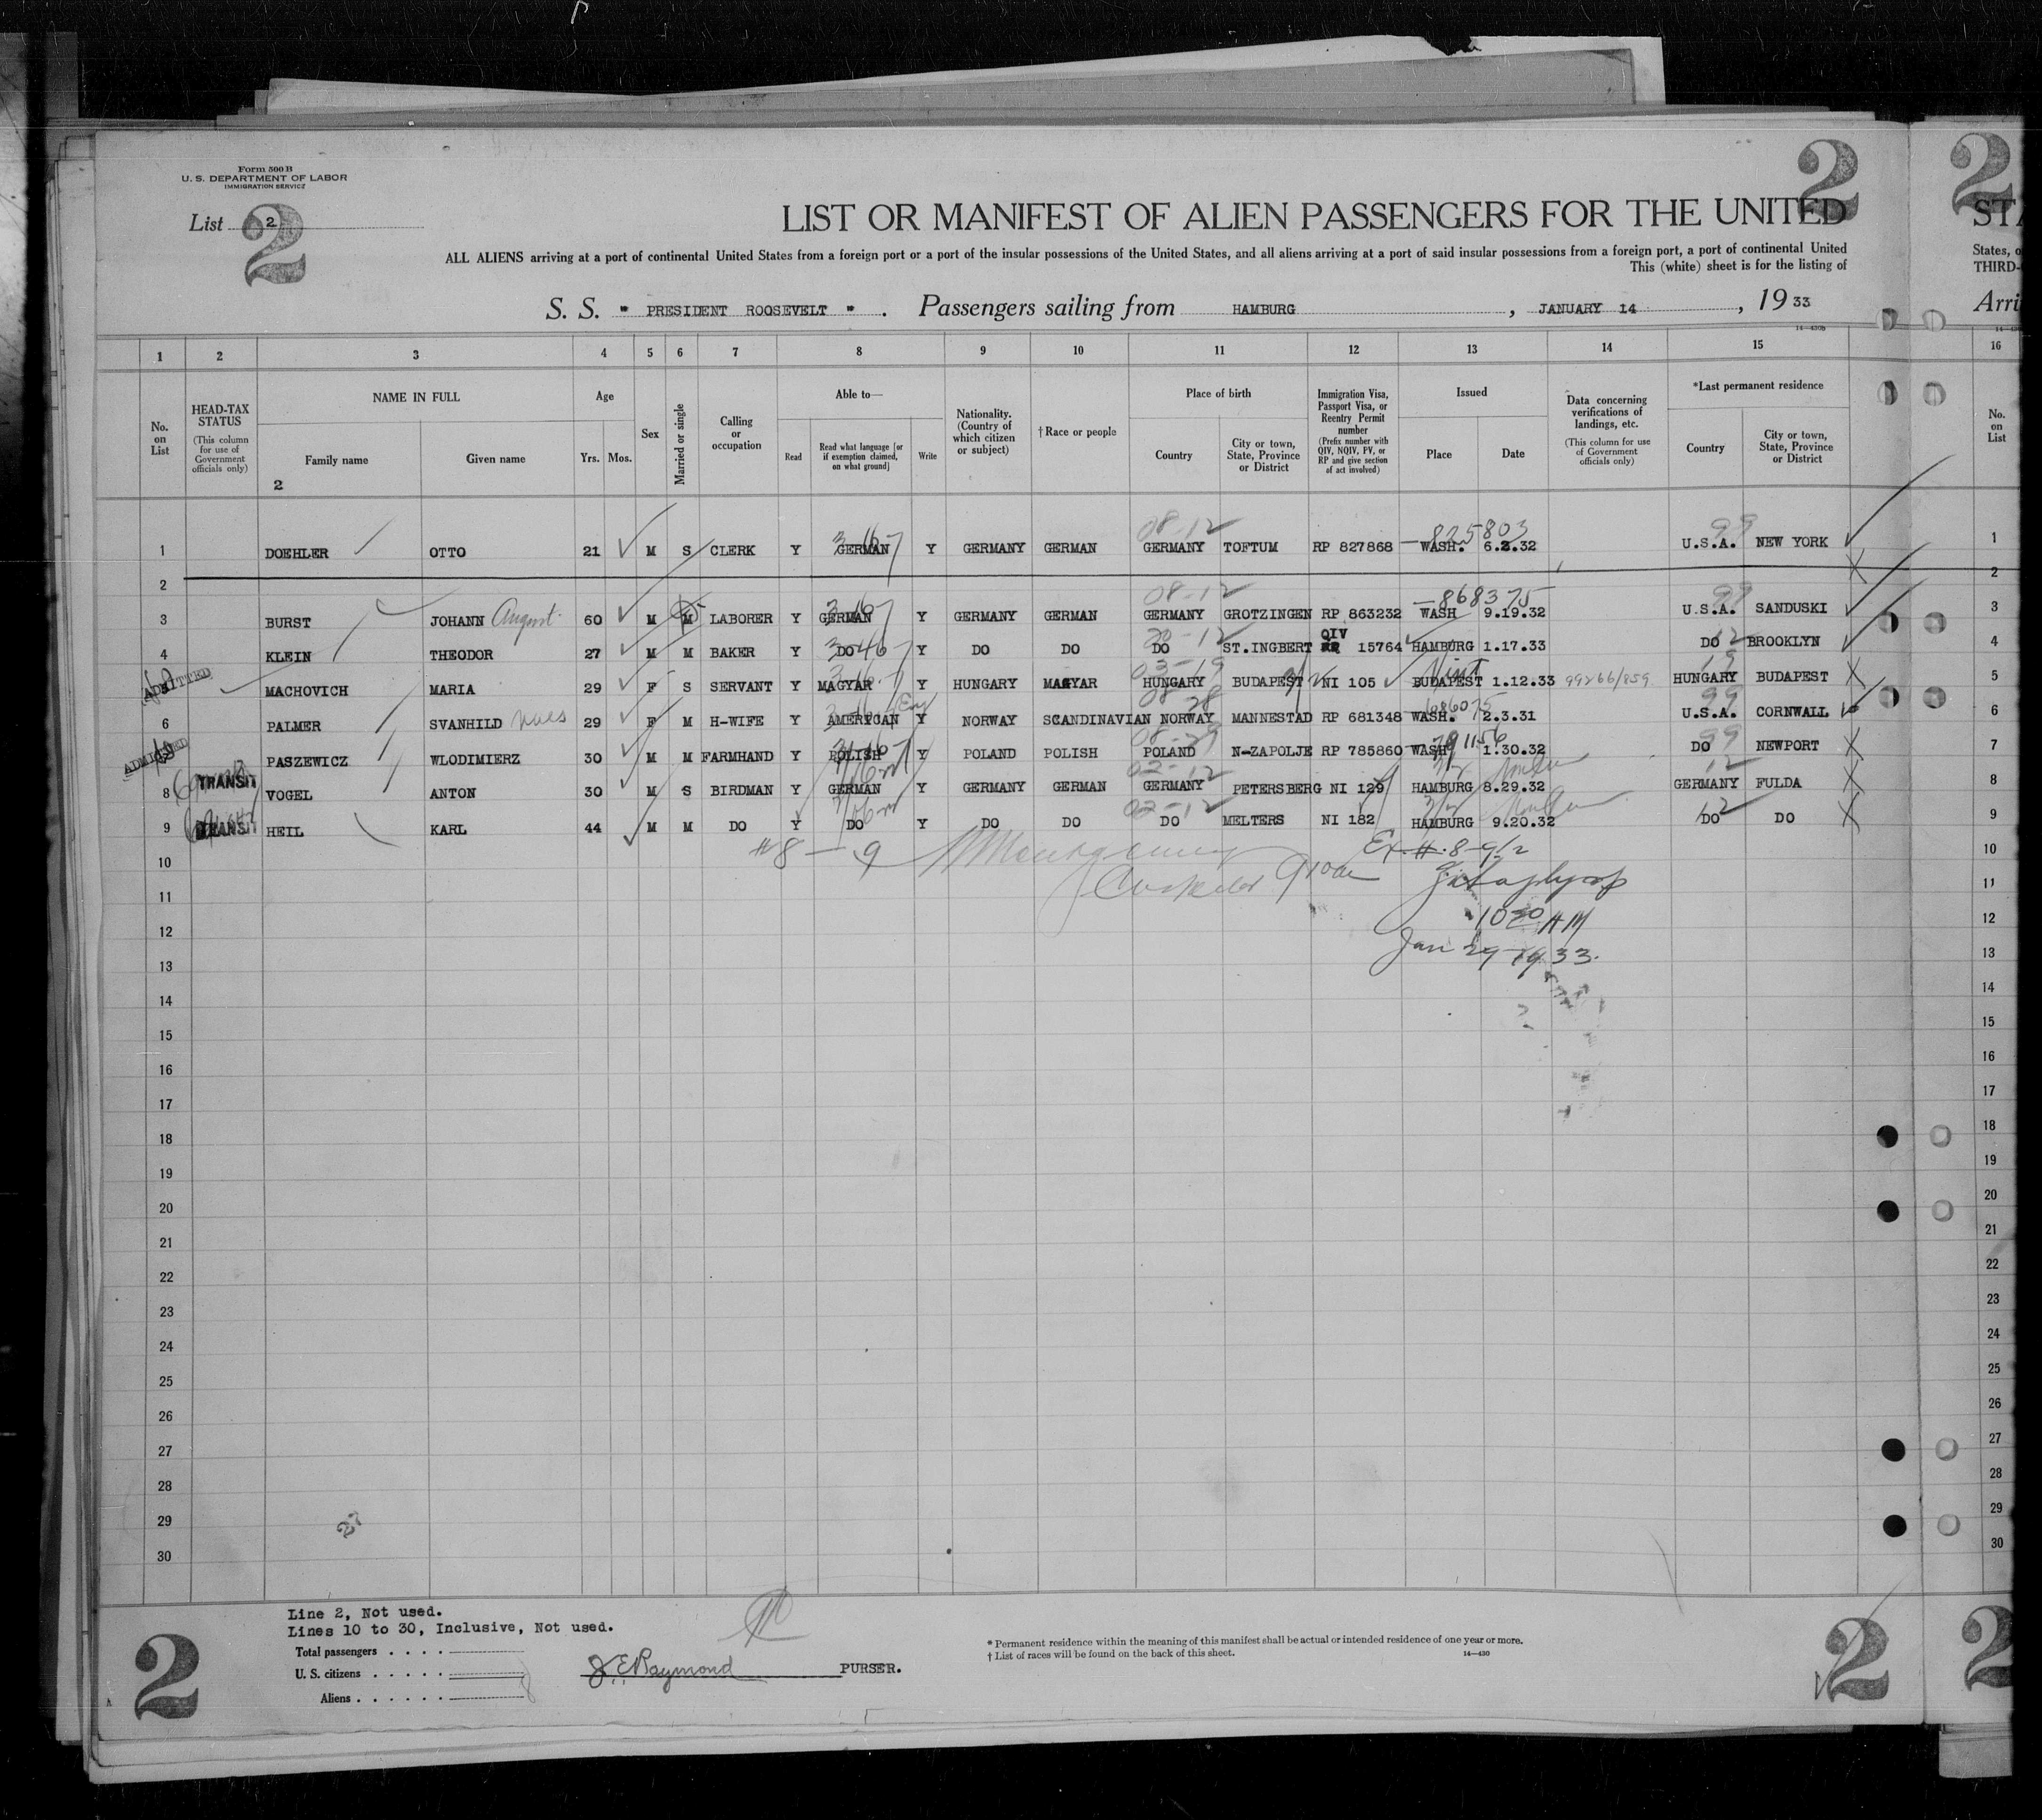 Form 500 B
U. S. DEPARTMENT OF LABOR
IMMIGRATION SERVICE
List 2
2
2
2
LIST OR MANIFEST OF ALIEN PASSENGERS FOR THE UNITED
STA
ALL ALIENS arriving at a port of continental United States from a foreign port or a port of the insular possessions of the United States, and all aliens arriving at a port of said insular possessions from a foreign port, a port of continental United
States, o
This (white) sheet is for the listing of
THIRD-
S. S. " PRESIDENT ROOSEVELT " . Passengers sailing from HAMBURG , JANUARY 14 , 19 33
Arri
1 2 3 4 5 6 7 8 9 10 11 12 13 14 15 16
No. on List
HEAD-TAX STATUS
(This column for use of Government officials only)
NAME IN FULL
Family name
2
Given name
Age
Yrs. Mos.
Sex
Married or single
Calling or occupation
Able to—
Read
Read what language [or if exemption claimed, on what ground]
Write
Nationality. (Country of which citizen or subject)
†Race or people
Place of birth
Country
City or town, State, Province or District
Immigration Visa, Passport Visa, or Reentry Permit number
(Prefix number with QIV, NQIV, PV, or RP and give section of act involved)
Issued
Place
Date
Data concerning verifications of landings, etc.
(This column for use of Government officials only)
*Last permanent residence
Country
City or town, State, Province or District
No. on List
08-12 825803 99
1 DOEHLER OTTO 21 M S CLERK Y GERMAN Y GERMANY GERMAN GERMANY TOFTUM RP 827868 WASH. 6.2.32 U.S.A. NEW YORK 1
2 2
08-12 868375 99
3 BURST JOHANN August 60 M M LABORER Y GERMAN Y GERMANY GERMAN GERMANY GROTZINGEN RP 863232 WASH 9.19.32 U.S.A. SANDUSKI 3
4 KLEIN THEODOR 27 M M BAKER Y DO Y DO DO DO ST.INGBERT QIV 15764 HAMBURG 1.17.33 DO BROOKLYN 4
ADMITTED
5 MACHOVICH MARIA 29 F S SERVANT Y MAGYAR Y HUNGARY MAGYAR HUNGARY BUDAPEST NI 105 BUDAPEST 1.12.33 99266/859 HUNGARY BUDAPEST 5
6 PALMER SVANHILD 29 F M H-WIFE Y AMERICAN Eng Y NORWAY SCANDINAVIAN NORWAY MANNESTAD RP 681348 WASH. 2.3.31 U.S.A. CORNWALL 6
ADMITTED
7 PASZEWICZ WLODIMIERZ 30 M M FARMHAND Y POLISH Y POLAND POLISH POLAND N-ZAPOLJE RP 785860 WASH 791156 1.30.32 DO NEWPORT 7
8 TRANSIT VOGEL ANTON 30 M S BIRDMAN Y GERMAN Y GERMANY GERMAN GERMANY PETERSBERG NI 129 HAMBURG 8.29.32 GERMANY FULDA 8
9 TRANSIT HEIL KARL 44 M M DO Y DO Y DO DO DO MELTERS NI 182 HAMBURG 9.20.32 DO DO 9
#8 — 9
10 10
11 11
12 10 30 AM 12
13 Jan 29 1933. 13
14 14
15 15
16 16
17 17
18 18
19 19
20 20
21 21
22 22
23 23
24 24
25 25
26 26
27 27
28 28
29 29
30 30
Line 2, Not used.
Lines 10 to 30, Inclusive, Not used.
Total passengers . . . .
U. S. citizens . . . . .
Aliens . . . . . .
J. E. Raymond PURSER.
* Permanent residence within the meaning of this manifest shall be actual or intended residence of one year or more.
† List of races will be found on the back of this sheet.
14—430
2
2
2